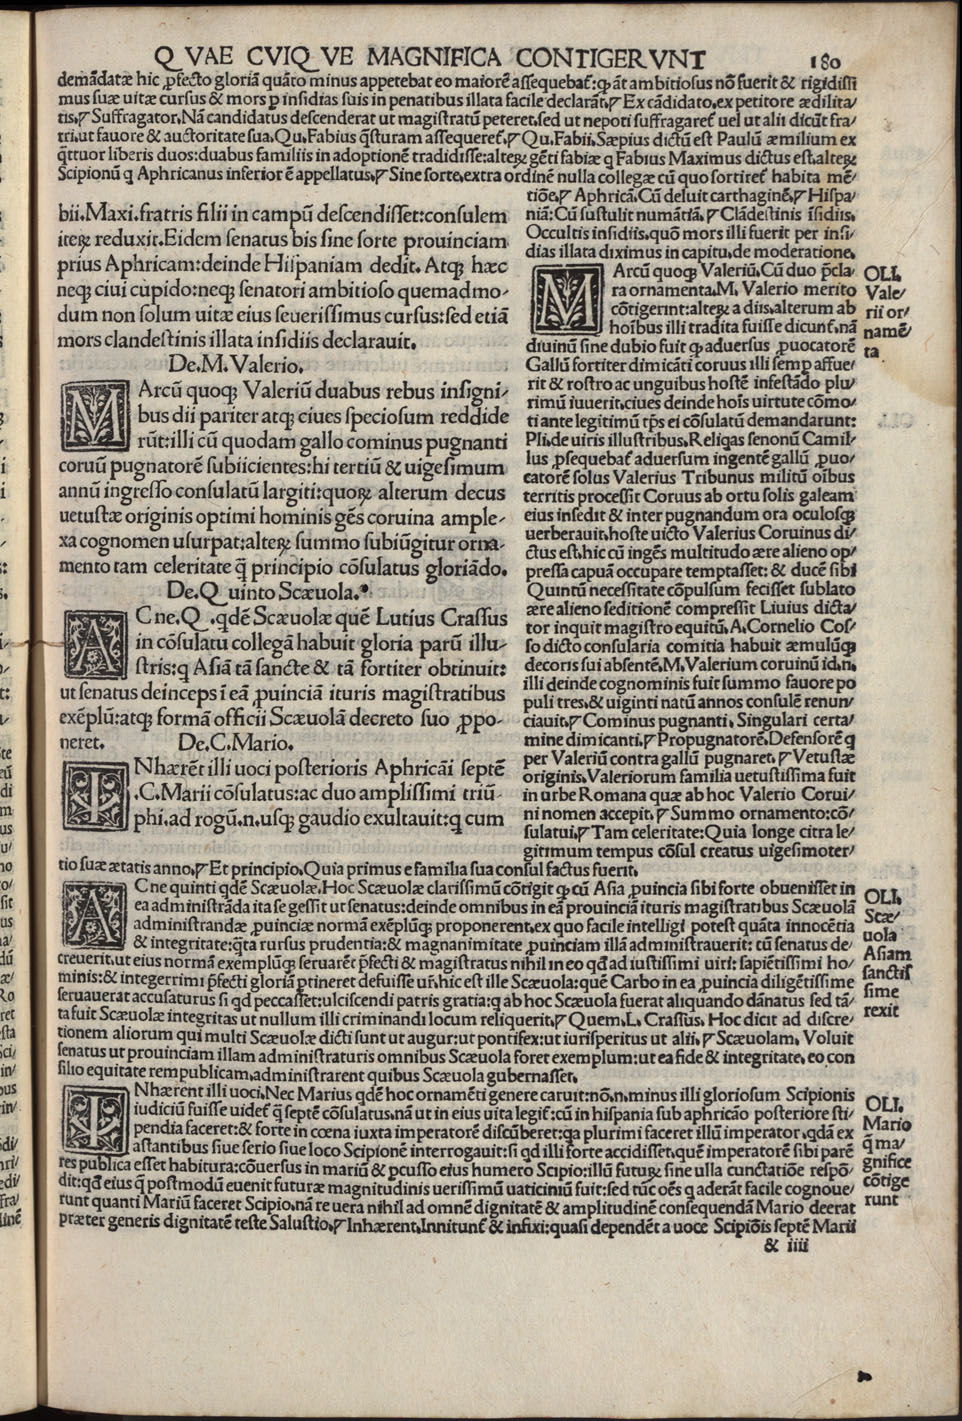 Q VAE CVIQ VE MAGNIFICA CONTIGERVNT 180
demādatæ hic ꝓfecto gloriā quāto minus appetebat eo maiorē assequebat᷑:ꝙ āt ambitiosus nō fuerit & rigidissi
mus suæ uitæ cursus & mors ꝑ insidias suis in penatibus illata facile declarāt,¶Ex cādidato,ex petitore ædilita/
tis,¶Suffragator,Nā candidatus descenderat ut magistratū peteret,sed ut nepoti suffragaret᷑ uel ut alii dicūt fra/
tri,ut fauore & auctoritate sua,Qu,Fabius q̄sturam assequeret᷑,¶Qu,Fabii,Sæpius dictū est Paulū æmilium ex
q̄ttuor liberis duos:duabus familiis in adoptionē tradidisse:alteꝝ gēti fabiæ q Fabius Maximus dictus est,alteꝝ
Scipionū q Aphricanus inferior ē appellatus,¶Sine sorte,extra ordinē nulla collegæ cū quo sortiret᷑ habita mē/
bii.Maxi.fratris filii in campū descendisset:consulem
iteꝝ reduxit.Eidem senatus bis sine sorte prouinciam
prius Aphricam:deinde Hispaniam dedit. Atqꝫ hæc
neqꝫ ciui cupido:neqꝫ senatori ambitioso quemadmo-
dum non solum uitæ eius seuerissimus cursus:sed etiā
mors clandestinis illata insidiis declarauit.
De.M.Valerio.
MArcū quoqꝫ Valeriū duabus rebus insigni-
bus dii pariter atqꝫ ciues speciosum reddide
rūt:illi cū quodam gallo cominus pugnanti
coruū pugnatorē subiicientes:hi tertiū & uigesimum
annū ingresso consulatū largiti:quoꝝ alterum decus
uetustæ originis optimi hominis gēs coruina ample-
xa cognomen usurpat:alteꝝ summo subiūgitur orna-
mento tam celeritate q̄ principio cōsulatus gloriādo.
De.Q uinto Scæuola.
ACne.Q .qdē Scæuolæ quē Lutius Crassus
in cōsulatu collegā habuit gloria parū illu-
stris:q Asiā tā sancte & tā fortiter obtinuit:
ut senatus deinceps ī eā ꝓuinciā ituris magistratibus
exēplū:atqꝫ formā officii Scæuolā decreto suo ꝓpo-
neret. De.C.Mario.
INhærēt illi uoci posterioris Aphricāi septē
.C.Marii cōsulatus:ac duo amplissimi triū-
phi.ad rogū.n.usqꝫ gaudio exultauit:q cum
tiōe,¶Aphricā,Cū deluit carthaginē,¶Hispa/
niā:Cū sustulit numātiā,¶Clādestinis īsidiis,
Occultis insidiis,quō mors illi fuerit per insi/
dias illata diximus in capitu,de moderatione,
MArcū quoqꝫ Valeriū,Cū duo p̄cla/
ra ornamenta,M, Valerio merito
cōtigerint:alteꝝ a diis,alterum ab
hoībus illi tradita fuisse dicunt᷑,nā
diuinū sine dubio fuit ꝙ aduersus ꝓuocatorē
Gallū fortiter dimicāti coruus illi semꝑ affue/
rit & rostro ac unguibus hostē infestādo plu/
rimū iuuerit,ciues deinde hoīs uirtute cōmo/
ti ante legitimū tp̄s ei cōsulatū demandarunt:
Pli,de uiris illustribus,Reliqas senonū Camil/
lus ꝓsequebat᷑ aduersum ingentē gallū ꝓuo/
catorē solus Valerius Tribunus militū oībus
territis processit Coruus ab ortu solis galeam
eius insedit & inter pugnandum ora oculosqꝫ
uerberauit,hoste uicto Valerius Coruinus di/
ctus est,hic cū ingēs multitudo ære alieno op/
pressa capuā occupare temptasset: & ducē sibi
Quintū necessitate cōpulsum fecisset sublato
ære alieno seditionē compressit Liuius dicta/
tor inquit magistro equitū,A,Cornelio Cos/
so dicto consularia comitia habuit æmulūqꝫ
decoris sui absentē,M,Valerium coruinū id,n,
illi deinde cognominis fuit summo fauore po
puli tres,& uiginti natū annos consulē renun/
ciauit,¶Cominus pugnanti, Singulari certa/
mine dimicanti,¶Propugnatorē,Defensorē q
per Valeriū contra gallū pugnaret,¶Vetustæ
originis,Valeriorum familia uetustissima fuit
in urbe Romana quæ ab hoc Valerio Corui/
ni nomen accepit,¶Summo ornamento:cō/
sulatui,¶Tam celeritate:Quia longe citra le/
gitimum tempus cōsul creatus uigesimoter/
tio suæ ætatis anno,¶Et principio,Quia primus e familia sua consul factus fuerit,
OLI,
Vale/
rii or/
namē/
ta
ACne quinti qdē Scæuolæ,Hoc Scæuolæ clarissimū cōtigit ꝙ cū Asia ꝓuincia sibi forte obuenisset in
ea administrāda ita se gessit ut senatus:deinde omnibus in eā prouinciā ituris magistratibus Scæuolā
administrandæ ꝓuinciæ normā exēplūqꝫ proponerent,ex quo facile intelligi potest quāta innocētia
& integritate:q̄ta rursus prudentia:& magnanimitate ꝓuinciam illā administrauerit: cū senatus de/
creuerit,ut eius normā exemplūqꝫ seruarēt p̄fecti & magistratus nihil in eo qd̄ ad iustissimi uiri: sapiētissimi ho/
minis:& integerrimi p̄fecti gloriā ꝑtineret defuisse ur᷑,hic est ille Scæuola:quē Carbo in ea ꝓuincia diligētissime
seruauerat accusaturus si qd peccasset:ulciscendi patris gratia:q ab hoc Scæuola fuerat aliquando dānatus sed tā/
ta fuit Scæuolæ integritas ut nullum illi criminandi locum reliquerit,¶Quem,L,Crassus, Hoc dicit ad discre/
tionem aliorum qui multi Scæuolæ dicti sunt ut augur:ut pontifex:ut iurisperitus ut alii,¶Scæuolam, Voluit
senatus ut prouinciam illam administraturis omnibus Scæuola foret exemplum:ut ea fide & integritate, eo con
silio equitate rempublicam,administrarent quibus Scæuola gubernasset,
OLI,
Scæ/
uola
Asiam
sanctis
sime
rexit
INhærent illi uoci,Nec Marius qdē hoc ornamēti genere caruit:nō,n,minus illi gloriosum Scipionis
iudiciū fuisse uidet᷑ q̄ septē cōsulatus,nā ut in eius uita legit᷑:cū in hispania sub aphricāo posteriore sti/
pendia faceret:& forte in cœna iuxta imperatorē discūberet:qa plurimi faceret illū imperator,qdā ex
astantibus siue serio siue loco Scipionē interrogauit:si qd illi forte accidisset,quē imperatorē sibi parē
res publica esset habitura:cōuersus in mariū & ꝑcusso eius humero Scipio:illū futuꝝ sine ulla cunctatiōe respō/
dit:qd̄ eius q̄ postmodū euenit futuræ magnitudinis uerissimū uaticiniū fuit:sed tūc oēs q aderāt facile cognoue/
runt quanti Mariū faceret Scipio,nā re uera nihil ad omnē dignitatē & amplitudinē consequendā Mario deerat
præter generis dignitatē teste Salustio,¶Inhærent,Innitunt᷑ & infixi:quasi dependēt a uoce Scipiōis septē Marii
OLI,
Mario
q̄ ma/
gnifice
cōtige
runt
& iiii